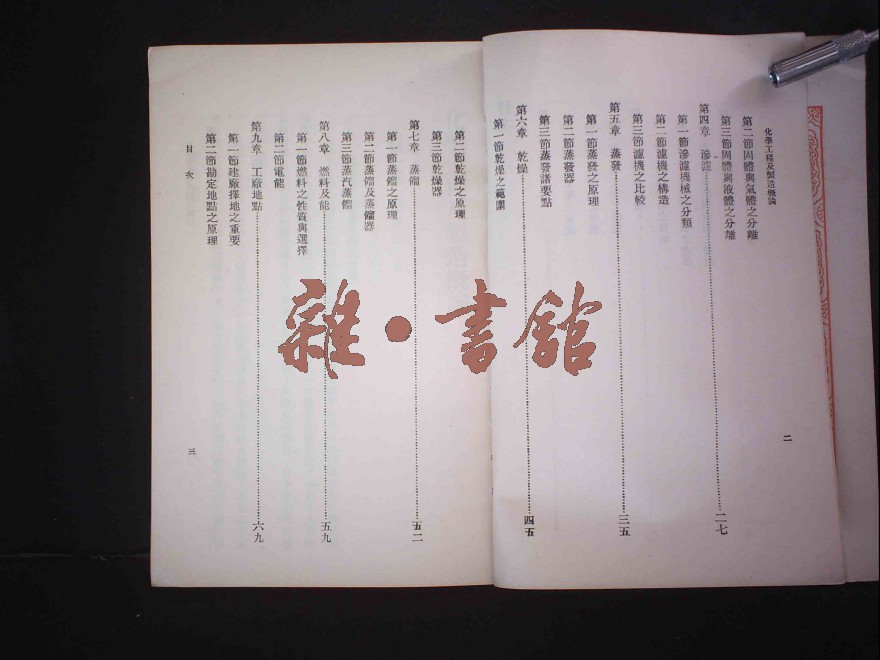 化學工程及製造概論
第二節固體與氣體之分離
第三節固體與液體之分離
第四章 滲濾……二七
第一節滲濾機械之分類
第二節濾機之構造
第三節濾機之比較
第五章 蒸發……三五
第一節蒸發之原理
第二節蒸發器
第三節蒸發諸要點
第六章 乾燥……四五
第一節乾燥之範圍
二
第二節乾燥之原理
第三節乾燥器
第七章 蒸餾……五二
第一節蒸餾之原理
第二節蒸餾及蒸餾器
第三節蒸汽蒸餾
第八章 燃料及能……五九
第一節燃料之性質與選擇
第二節電能
第九章 工廠地點……六九
第一節建廠擇地之重要
第二節勘定地點之原理
目次
三
雜·書館